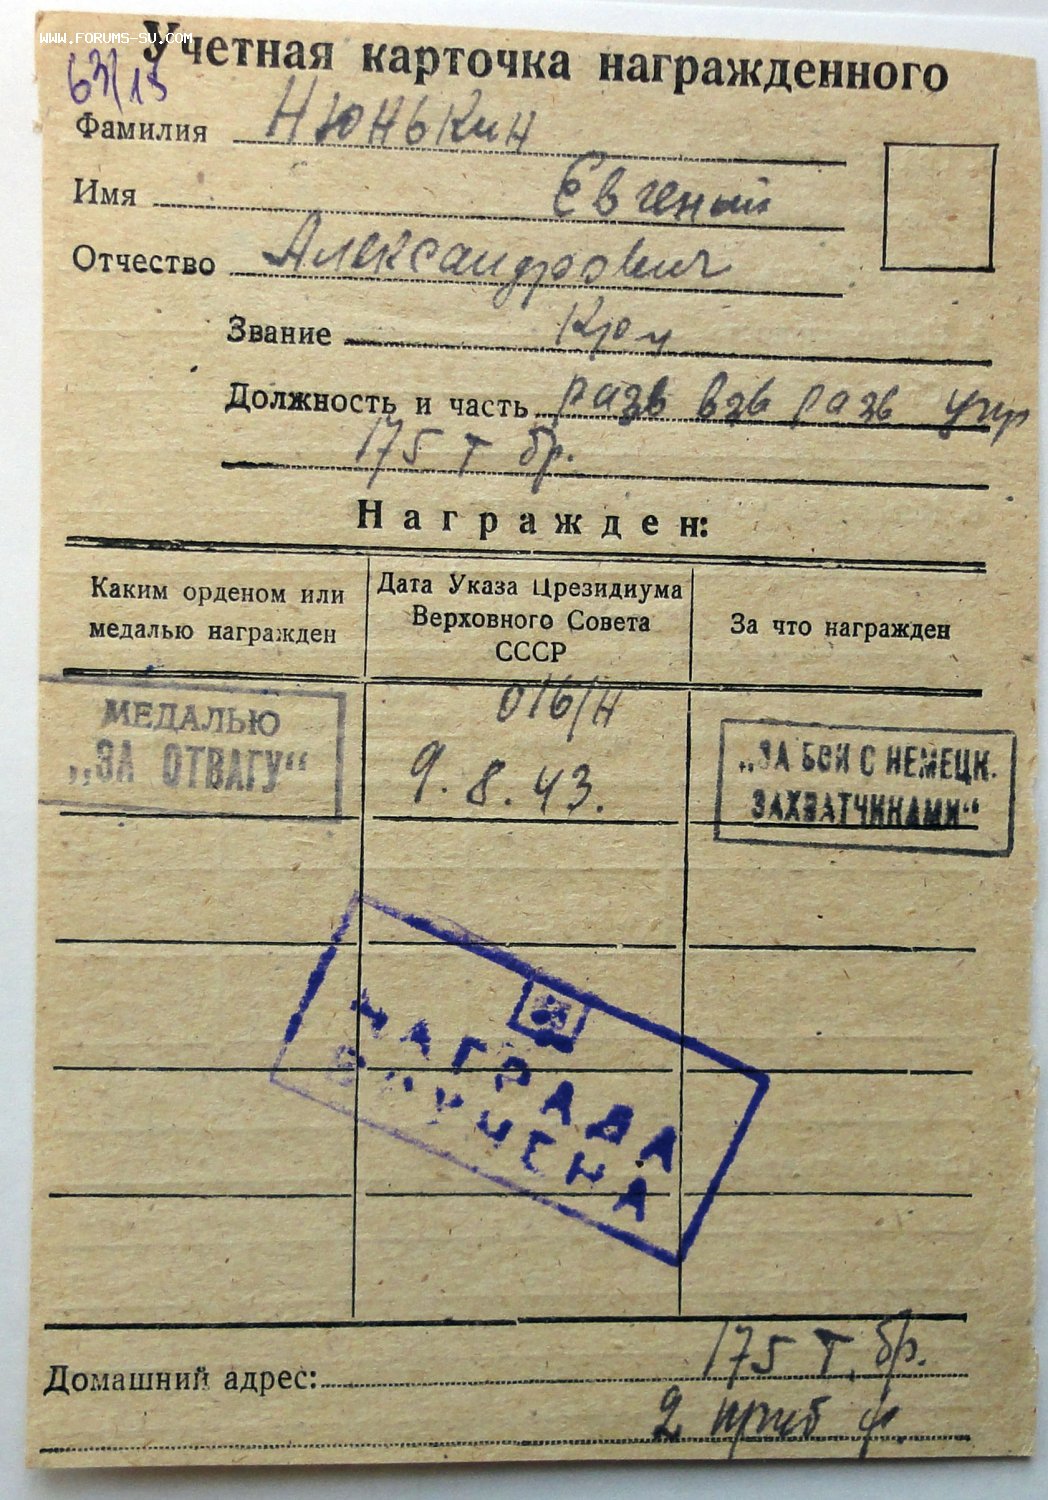 www.forums-su.com
Учетная карточка награжденного
63/15
Фамилия Нюнькин
Имя Евгений
Отчество Александрович
Звание
Должность и часть разв взв разв упр
175 т бр.
Награжден:
Каким орденом или медалью награжден
Дата Указа Президиума Верховного Совета СССР
За что награжден
МЕДАЛЬЮ
„ЗА ОТВАГУ“
016/н
9.8.43.
„ЗА БОИ С НЕМЕЦК.
ЗАХВАТЧИКАМИ“
НАГРАДА
ВРУЧЕНА
Домашний адрес: 175 т. бр.
2 приб ф.